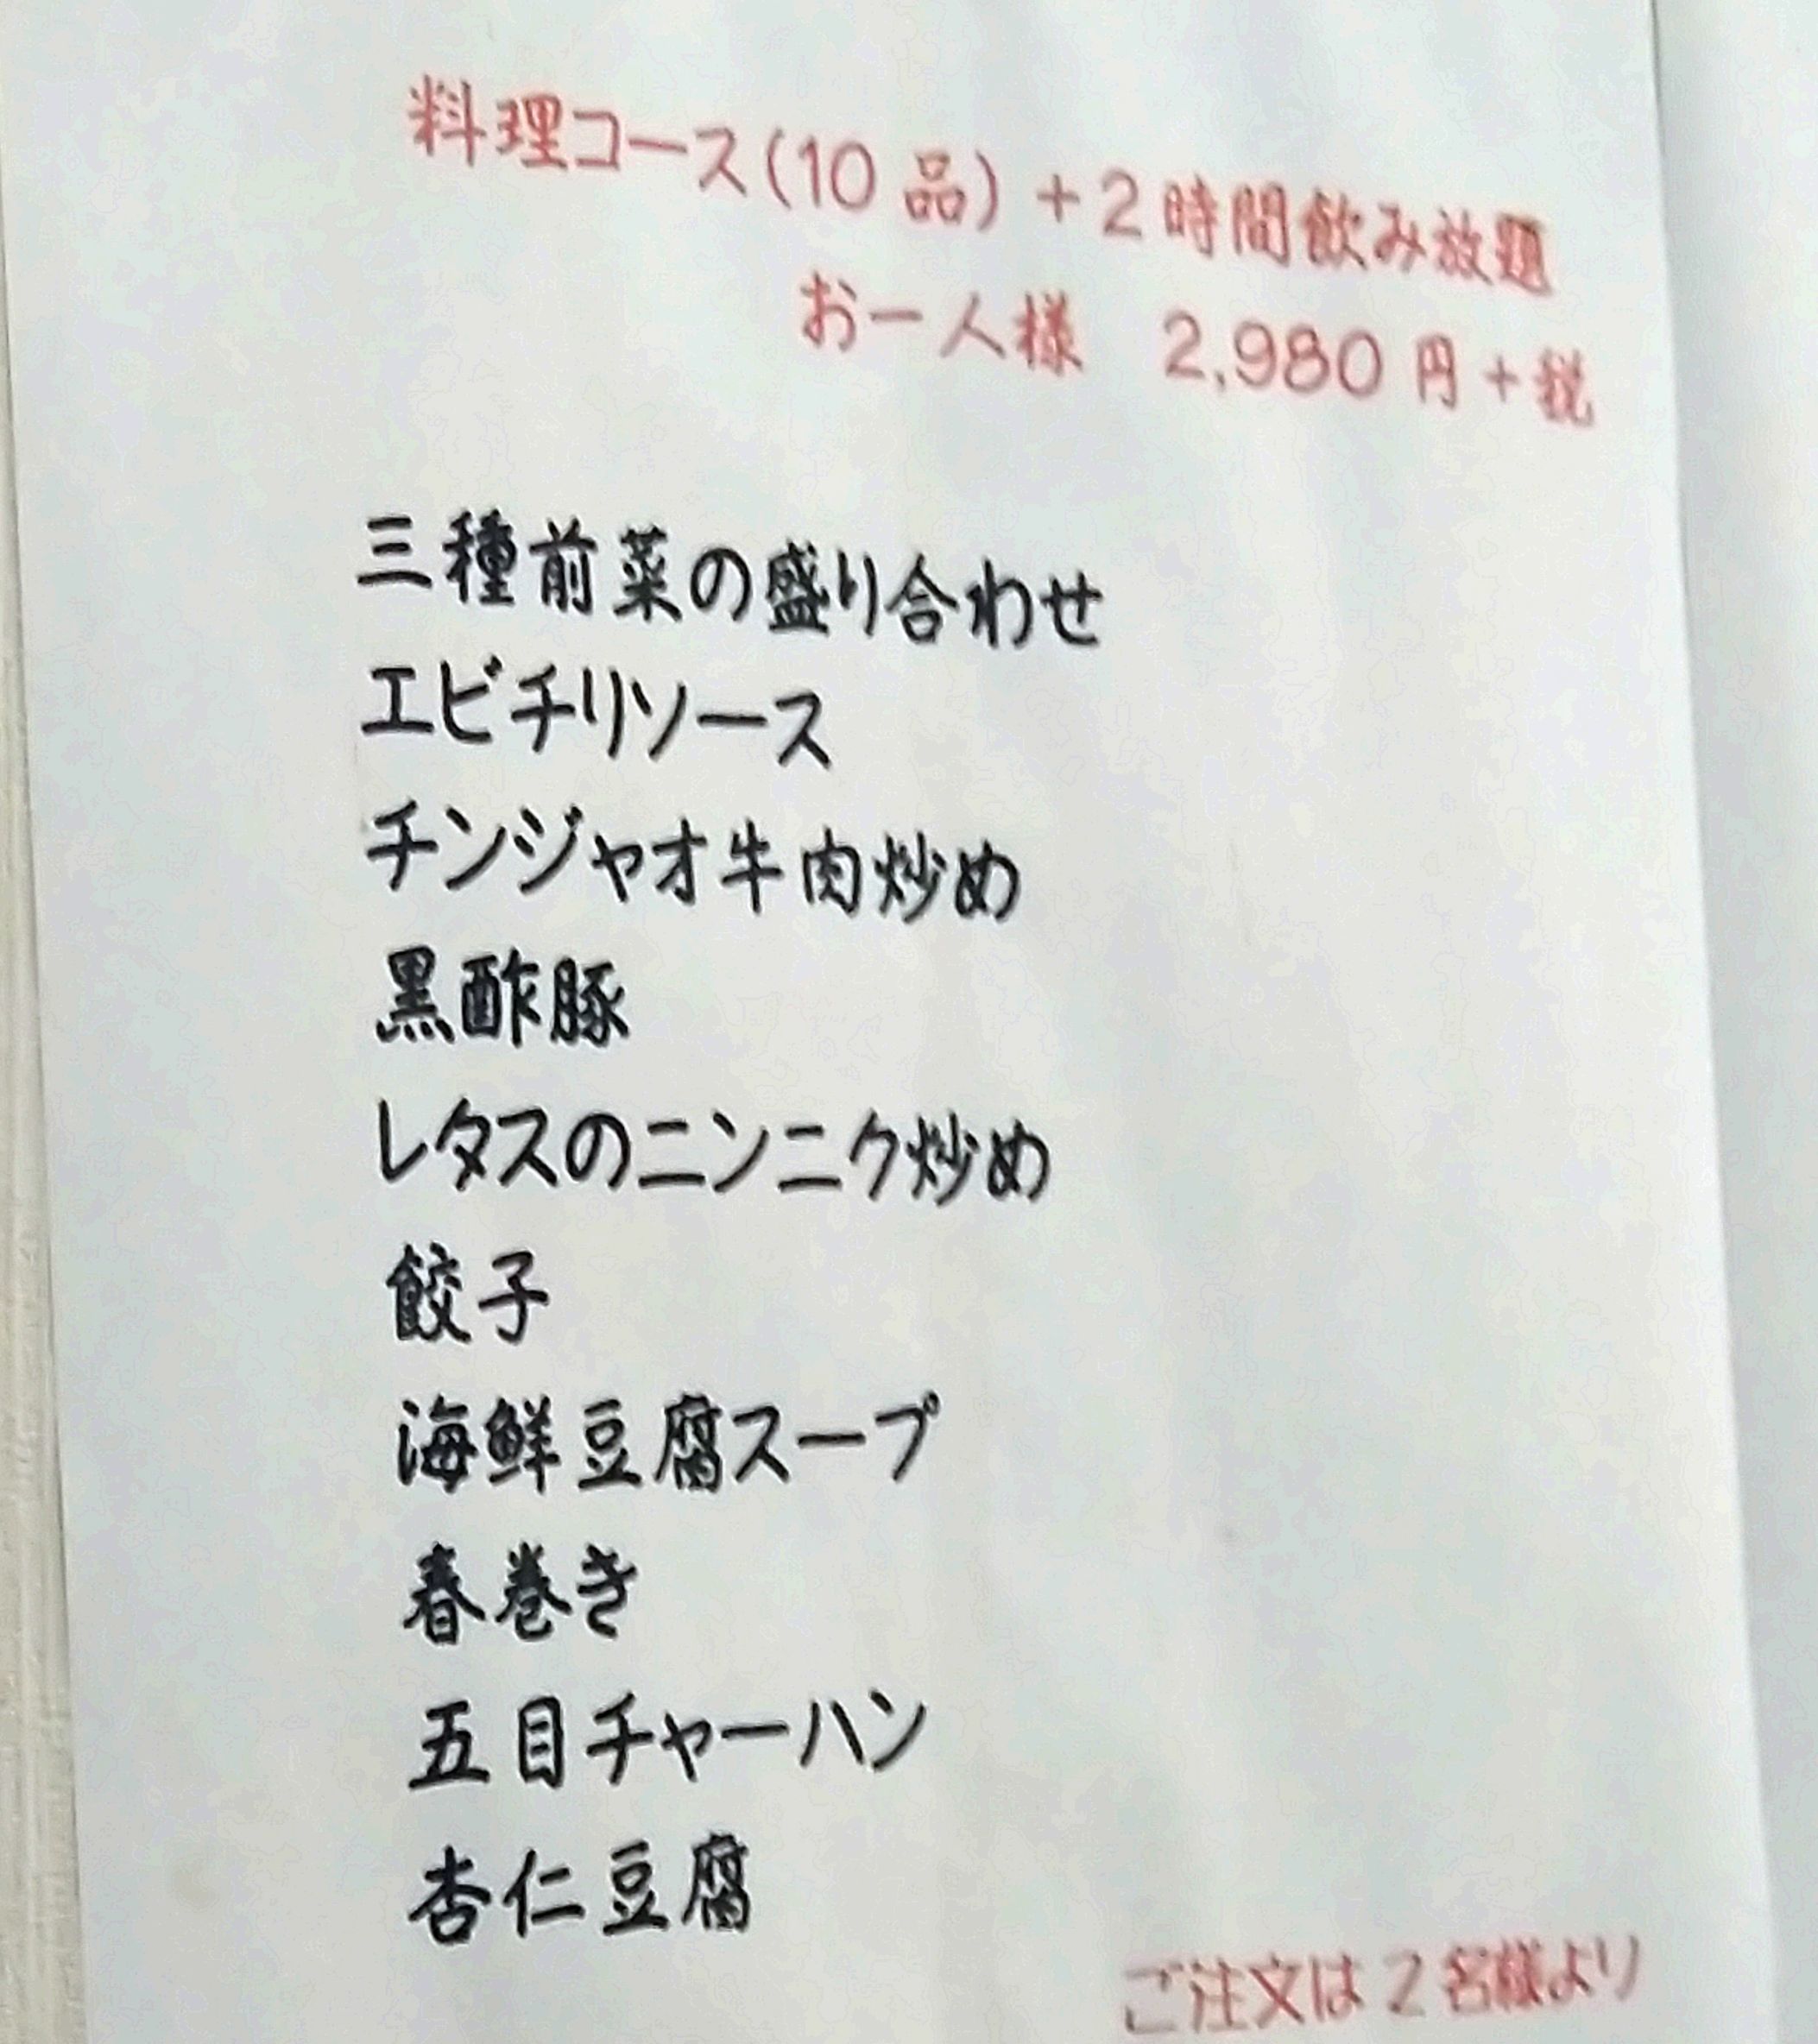 料理コース(10品)+2時間飲み放題
お一人様 2,980円+税
三種前菜の盛り合わせ
エビチリソース
チンジャオ牛肉炒め
黒酢豚
レタスのニンニク炒め
餃子
海鮮豆腐スープ
春巻き
五目チャーハン
杏仁豆腐
ご注文は2名様より